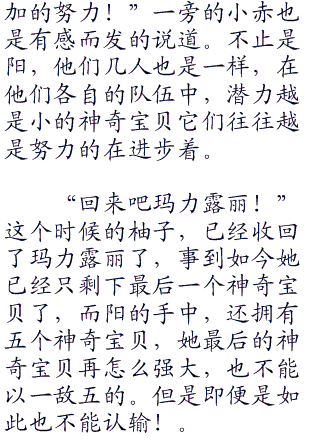 加的努力！”一旁的小赤也
是有感而发的说道。不止是
阳，他们几人也是一样，在
他们各自的队伍中，潜力越
是小的神奇宝贝它们往往越
是努力的在进步着。
“回来吧玛力露丽！”
这个时候的柚子，已经收回
了玛力露丽了，事到如今她
已经只剩下最后一个神奇宝
贝了，而阳的手中，还拥有
五个神奇宝贝，她最后的神
奇宝贝再怎么强大，也不能
以一敌五的。但是即便是如
此也不能认输！。